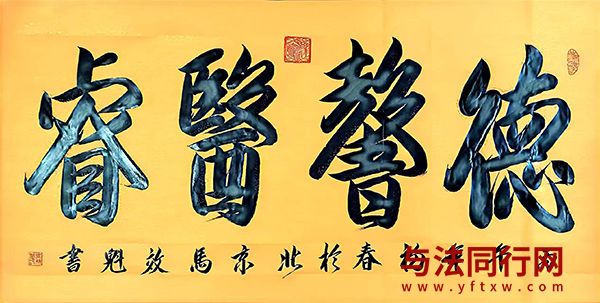 德馨醫睿
春於北京馬效魁書
与法同行网
www.yftxw.com